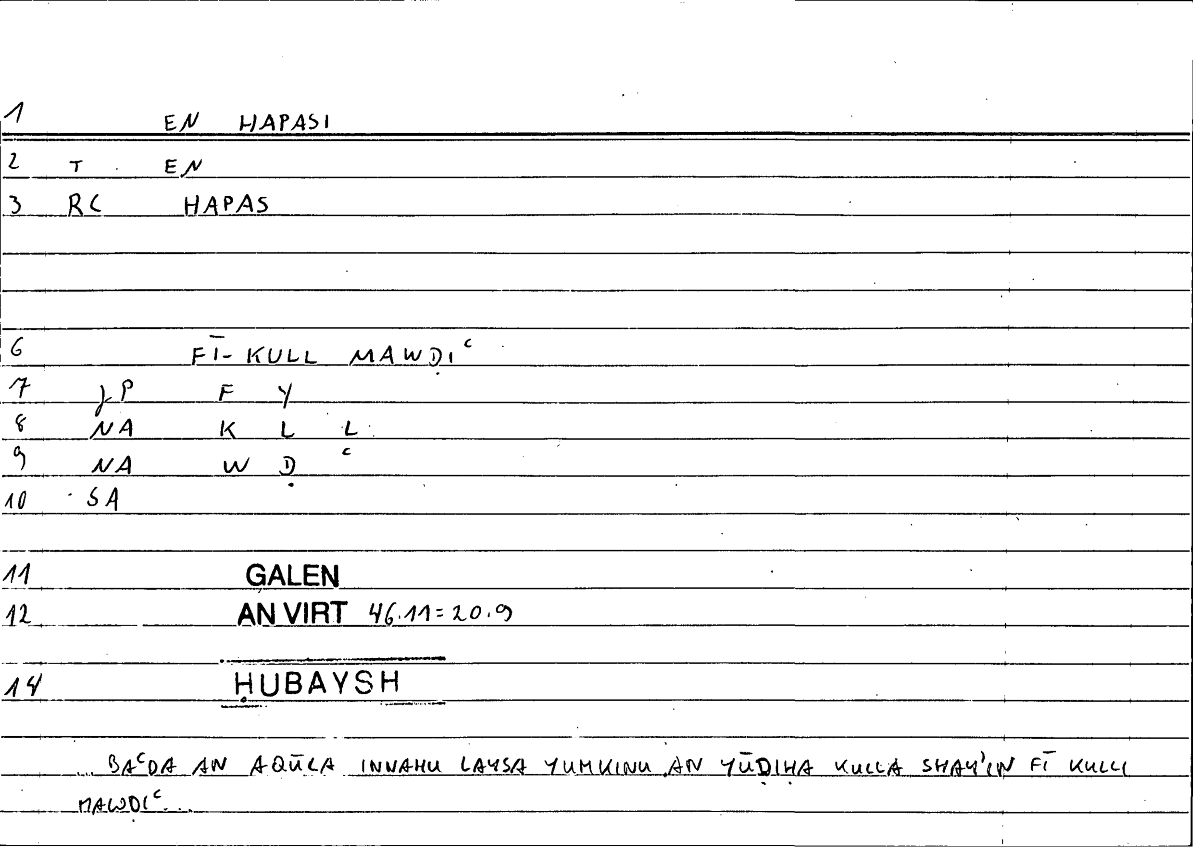 1 EN HAPASI
2 T EN
3 RC HAPAS
6 FĪ-KULL MAWḌIᶜ
7 JP F Y
8 NA K L L
9 NA W Ḍ ᶜ
10 SA
11 GALEN
12 AN VIRT 46.11=20.9
14 ḤUBAYSH
... BAᶜDA AN AQŪLA INNAHU LAYSA YUMKINU AN YŪḌIḤA KULLA SHAY'IN FĪ KULLI
MAWḌIᶜ...